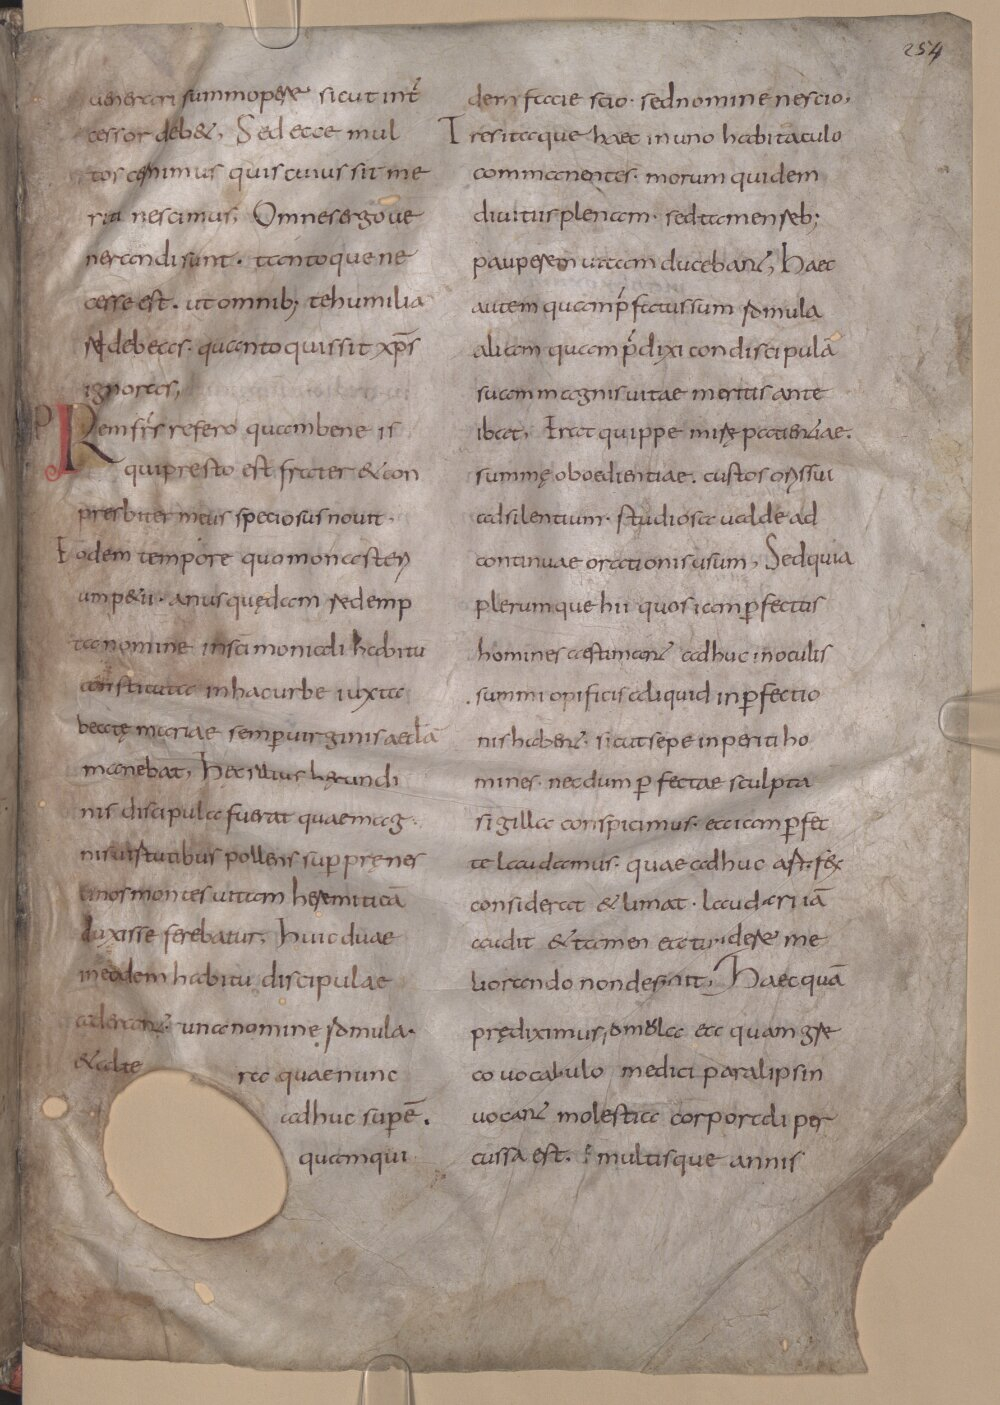 254
uenerari summopere sicut int̄
cessor deb&. Sed ecce mul
tos cernimus quis cuius sit me
riti nescimus. Omnes ergo ue
nerandi sunt. tantoque ne
cesse est. ut omnib; te humilia
re debeas. quanto quis sit xp̄s
ignoras,
Rem fr̄s refero quam bene is
qui presto est frater & con
presbiter meus speciosus nouit.
Eodem tempore quo monaster
ium p&ii. anus quędam redemp
ta nomine in sc̄imoniali habitu
constituta in hac urbe iuxta
beatę mariae semp̄ uirginis aeclā
manebat, Hęc illius hęrundi
nis discipula fuerat quae mag
nis uirtutibus pollens sup̄ prenes
tinos montes uitam heremiticā
duxisse ferebatur, Huic duae
in eodem habitu discipulae
aderant. una nomine romula.
& alte ra quae nunc
adhuc sup̄ē.
quam qui
dem facie scio. sed nomine nescio,
Tres itaque haec in uno habitaculo
commanentes. morum quidem
diuitiis plenam. sed tamen reb;
pauperem uitam ducebant, Haec
autem quam p̄fatus sum romula
aliam quam p̄dixi condiscipulā
suam magnis uitae meritis ante
ibat, Erat quippe mirę patientiae.
summę oboedientiae. custos oris sui
ad silentium. studiosa ualde ad
continuae orationis usum, Sed quia
plerumque hii quos iam p̄fectus
homines aestimant adhuc in oculis
summi opificis aliquid inp̄fectio
nis habent. sicut sepe inperiti ho
mines. necdum p̄fectae sculpta
sigilla conspicimus. ea iam p̄fec
te laudamus. quae adhuc artifex
considerat & limat. laudari iā
audit & tamen ea tundere me
liorando non desinit, Haec quā
prędiximus romula ea quam gre
co uocabulo medici paralipsin
uocant molestia corporali per
cussa est. multisque annis